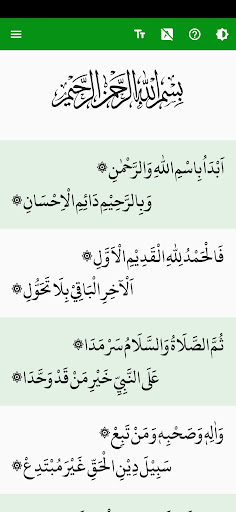 بِسْمِ اللهِ الرَّحْمٰنِ الرَّحِيْمِ
اَبْدَاُ بِاسْمِ اللهِ وَالرَّحْمٰنِ ۞
وَبِالرَّحِيْمِ دَائِمِ الْاِحْسَانِ ۞
فَالْحَمْدُ لِلهِ الْقَدِيْمِ الْاَوَّلِ ۞
اَلْآخِرِ الْبَاقِيْ بِلَا تَحَوُّلِ ۞
ثُمَّ الصَّلَاةُ وَالسَّلَامُ سَرْمَدَا ۞
عَلَى النَّبِيِّ خَيْرِ مَنْ قَدْ وَحَّدَا ۞
وَاٰلِهٖ وَصَحْبِهٖ وَمَنْ تَبِعْ ۞
سَبِيْلَ دِيْنِ الْحَقِّ غَيْرَ مُبْتَدِعْ ۞